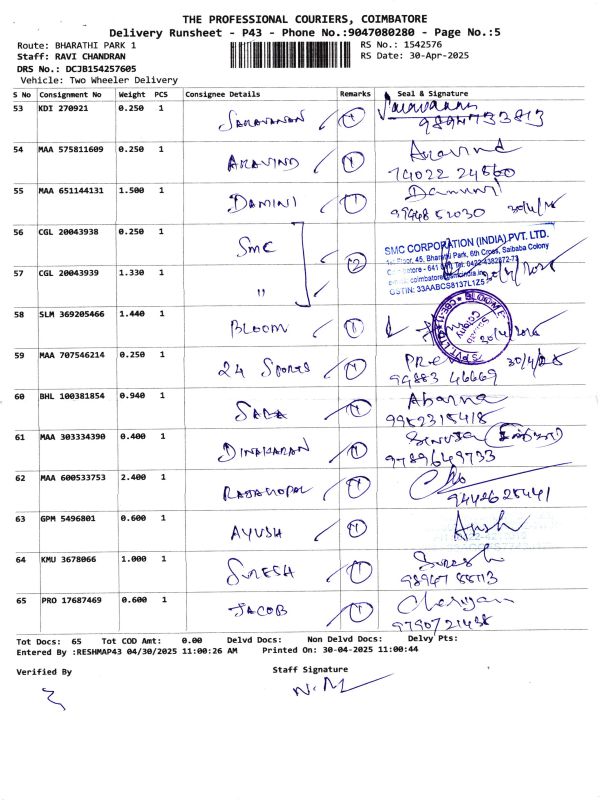 THE PROFESSIONAL COURIERS, COIMBATORE
Delivery Runsheet - P43 - Phone No.:9047080280 - Page No.:5
Route: BHARATHI PARK 1
RS No.: 1542576
Staff: RAVI CHANDRAN
RS Date: 30-Apr-2025
DRS No.: DCJB154257605
Vehicle: Two Wheeler Delivery
S No Consignment No Weight PCS Consignee Details Remarks Seal & Signature
53 KDI 270921 0.250 1 SARAVANAN 1 Saravanan
9894733813
54 MAA 575811609 0.250 1 ARAVIND 1 Aravind
74022 24860
55 MAA 651144131 1.500 1 DAMINI 1 Damini
9944852030
56 CGL 20043938 0.250 1 SMC 2
57 CGL 20043939 1.330 1 "
SMC CORPORATION (INDIA) PVT. LTD.
1st Floor, 45, Bharathi Park, 6th Cross, Saibaba Colony
GSTIN: 33AABCS8137L1Z5
58 SLM 369205466 1.440 1 BLOOM 1
59 MAA 707546214 0.250 1 24 SPORTS 1
99883 46669 30/4/25
60 BHL 100381854 0.940 1 1 Abarna
9952315418
61 MAA 303334390 0.400 1 DINAKARAN 1
9789649733
62 MAA 600533753 2.400 1 RAJAGOPAL 1
9442625441
63 GPM 5496801 0.600 1 AYUSH 1
64 KMU 3678066 1.000 1 SURESH 1 Suresh
65 PRO 17687469 0.600 1 JACOB 1 Cheriyan
9790721438
Tot Docs: 65 Tot COD Amt: 0.00 Delvd Docs: Non Delvd Docs: Delvy Pts:
Entered By :RESHMAP43 04/30/2025 11:00:26 AM Printed On: 30-04-2025 11:00:44
Verified By
Staff Signature